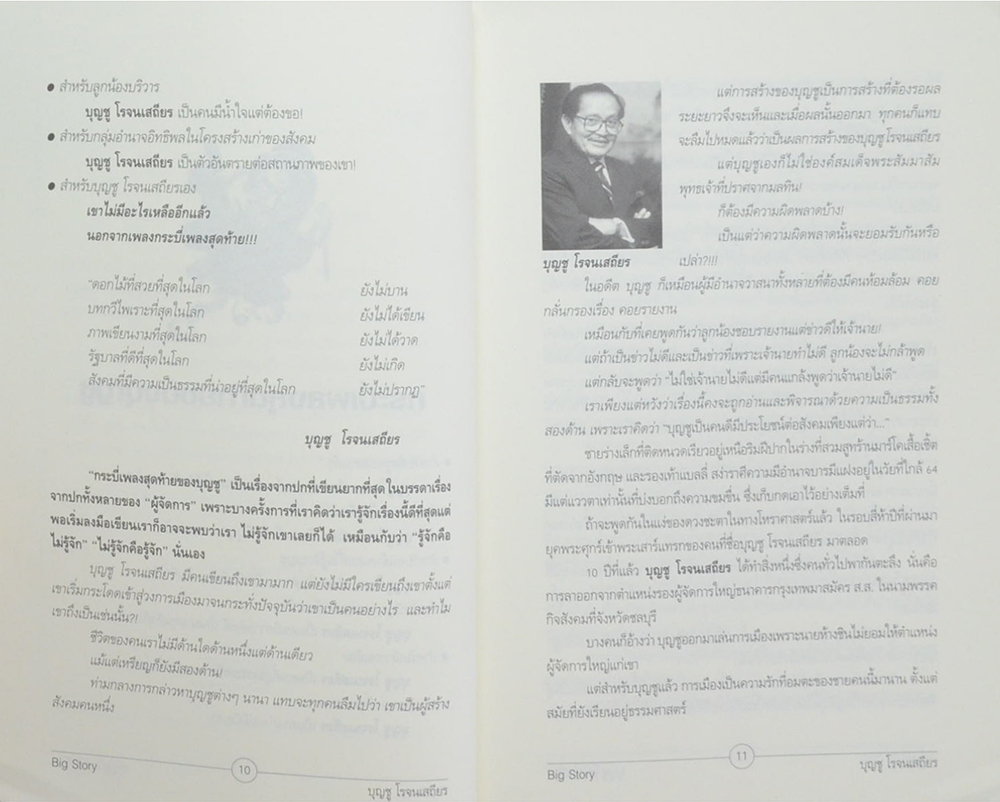 ● สำหรับลูกน้องบริวาร
บุญชู โรจนเสถียร เป็นคนมีน้ำใจแต่ต้องขอ!
● สำหรับกลุ่มอำนาจอิทธิพลในโครงสร้างเก่าของสังคม
บุญชู โรจนเสถียร เป็นตัวอันตรายต่อสถานภาพของเขา!
● สำหรับบุญชู โรจนเสถียรเอง
เขาไม่มีอะไรเหลืออีกแล้ว
นอกจากเพลงกระบี่เพลงสุดท้าย!!!
"ดอกไม้ที่สวยที่สุดในโลก ยังไม่บาน
บทกวีไพเราะที่สุดในโลก ยังไม่ได้เขียน
ภาพเขียนงามที่สุดในโลก ยังไม่ได้วาด
รัฐบาลที่ดีที่สุดในโลก ยังไม่เกิด
สังคมที่มีความเป็นธรรมที่น่าอยู่ที่สุดในโลก ยังไม่ปรากฏ"
บุญชู โรจนเสถียร
"กระบี่เพลงสุดท้ายของบุญชู" เป็นเรื่องจากปกที่เขียนยากที่สุดในบรรดาเรื่อง
จากปกทั้งหลายของ "ผู้จัดการ" เพราะบางครั้งการที่เราคิดว่าเรารู้จักเรื่องนี้ดีที่สุดแต่
พอเริ่มลงมือเขียนเราก็อาจจะพบว่าเรา ไม่รู้จักเขาเลยก็ได้ เหมือนกับว่า "รู้จักคือ
ไม่รู้จัก" "ไม่รู้จักคือรู้จัก" นั่นเอง
บุญชู โรจนเสถียร มีคนเขียนถึงเขามามาก แต่ยังไม่มีใครเขียนถึงเขาตั้งแต่
เขาเริ่มกระโดดเข้าสู่วงการเมืองมาจนกระทั่งปัจจุบันว่าเขาเป็นคนอย่างไร และทำไม
เขาถึงเป็นเช่นนั้น?!
ชีวิตของคนเราไม่มีด้านใดด้านหนึ่งแต่ด้านเดียว
แม้แต่เหรียญก็ยังมีสองด้าน!
ท่ามกลางการกล่าวหาบุญชูต่างๆ นานา แทบจะทุกคนลืมไปว่า เขาเป็นผู้สร้าง
สังคมคนหนึ่ง
Big Story 10 บุญชู โรจนเสถียร
แต่การสร้างของบุญชูเป็นการสร้างที่ต้องรอผล
ระยะยาวจึงจะเห็นและเมื่อผลนั้นออกมา ทุกคนก็แทบ
จะลืมไปหมดแล้วว่าเป็นผลการสร้างของบุญชูโรจนเสถียร
แต่บุญชูเองก็ไม่ใช่องค์สมเด็จพระสัมมาสัม
พุทธเจ้าที่ปราศจากมลทิน!
ก็ต้องมีความผิดพลาดบ้าง!
เป็นแต่ว่าความผิดพลาดนั้นจะยอมรับกันหรือ
เปล่า?!!!
บุญชู โรจนเสถียร
ในอดีต บุญชู ก็เหมือนผู้มีอำนาจวาสนาทั้งหลายที่ต้องมีคนห้อมล้อม คอย
กลั่นกรองเรื่อง คอยรายงาน
เหมือนกับที่เคยพูดกันว่าลูกน้องชอบรายงานแต่ข่าวดีให้เจ้านาย!
แต่ถ้าเป็นข่าวไม่ดีและเป็นข่าวที่เพราะเจ้านายทำไม่ดี ลูกน้องจะไม่กล้าพูด
แต่กลับจะพูดว่า "ไม่ใช่เจ้านายไม่ดีแต่มีคนแกล้งพูดว่าเจ้านายไม่ดี"
เราเพียงแต่หวังว่าเรื่องนี้คงจะถูกอ่านและพิจารณาด้วยความเป็นธรรมทั้ง
สองด้าน เพราะเราคิดว่า "บุญชูเป็นคนดีมีประโยชน์ต่อสังคมเพียงแต่ว่า..."
ชายร่างเล็กที่ติดหนวดเรียวอยู่เหนือริมฝีปากในร่างที่สวมสูทร้านมาร์โคเสื้อเชิ้ต
ที่ตัดจากอังกฤษ และรองเท้าแบลลี่ สง่าราศีความมีอำนาจบารมีแฝงอยู่ในวัยที่ใกล้ 64
มีแต่แววตาเท่านั้นที่บ่งบอกถึงความขมขื่น ซึ่งเก็บกดเอาไว้อย่างเต็มที่
ถ้าจะพูดกันในแง่ของดวงชะตาในทางโหราศาสตร์แล้ว ในรอบสี่ห้าปีที่ผ่านมา
ยุคพระศุกร์เข้าพระเสาร์แทรกของคนที่ชื่อบุญชู โรจนเสถียร มาตลอด
10 ปีที่แล้ว บุญชู โรจนเสถียร ได้ทำสิ่งหนึ่งซึ่งคนทั่วไปพากันตะลึง นั่นคือ
การลาออกจากตำแหน่งรองผู้จัดการใหญ่ธนาคารกรุงเทพมาสมัคร ส.ส. ในนามพรรค
กิจสังคมที่จังหวัดชลบุรี
บางคนก็อ้างว่า บุญชูออกมาเล่นการเมืองเพราะนายห้างชินไม่ยอมให้ตำแหน่ง
ผู้จัดการใหญ่แก่เขา
แต่สำหรับบุญชูแล้ว การเมืองเป็นความรักที่อมตะของชายคนนี้มานาน ตั้งแต่
สมัยที่ยังเรียนอยู่ธรรมศาสตร์
Big Story 11 บุญชู โรจนเสถียร